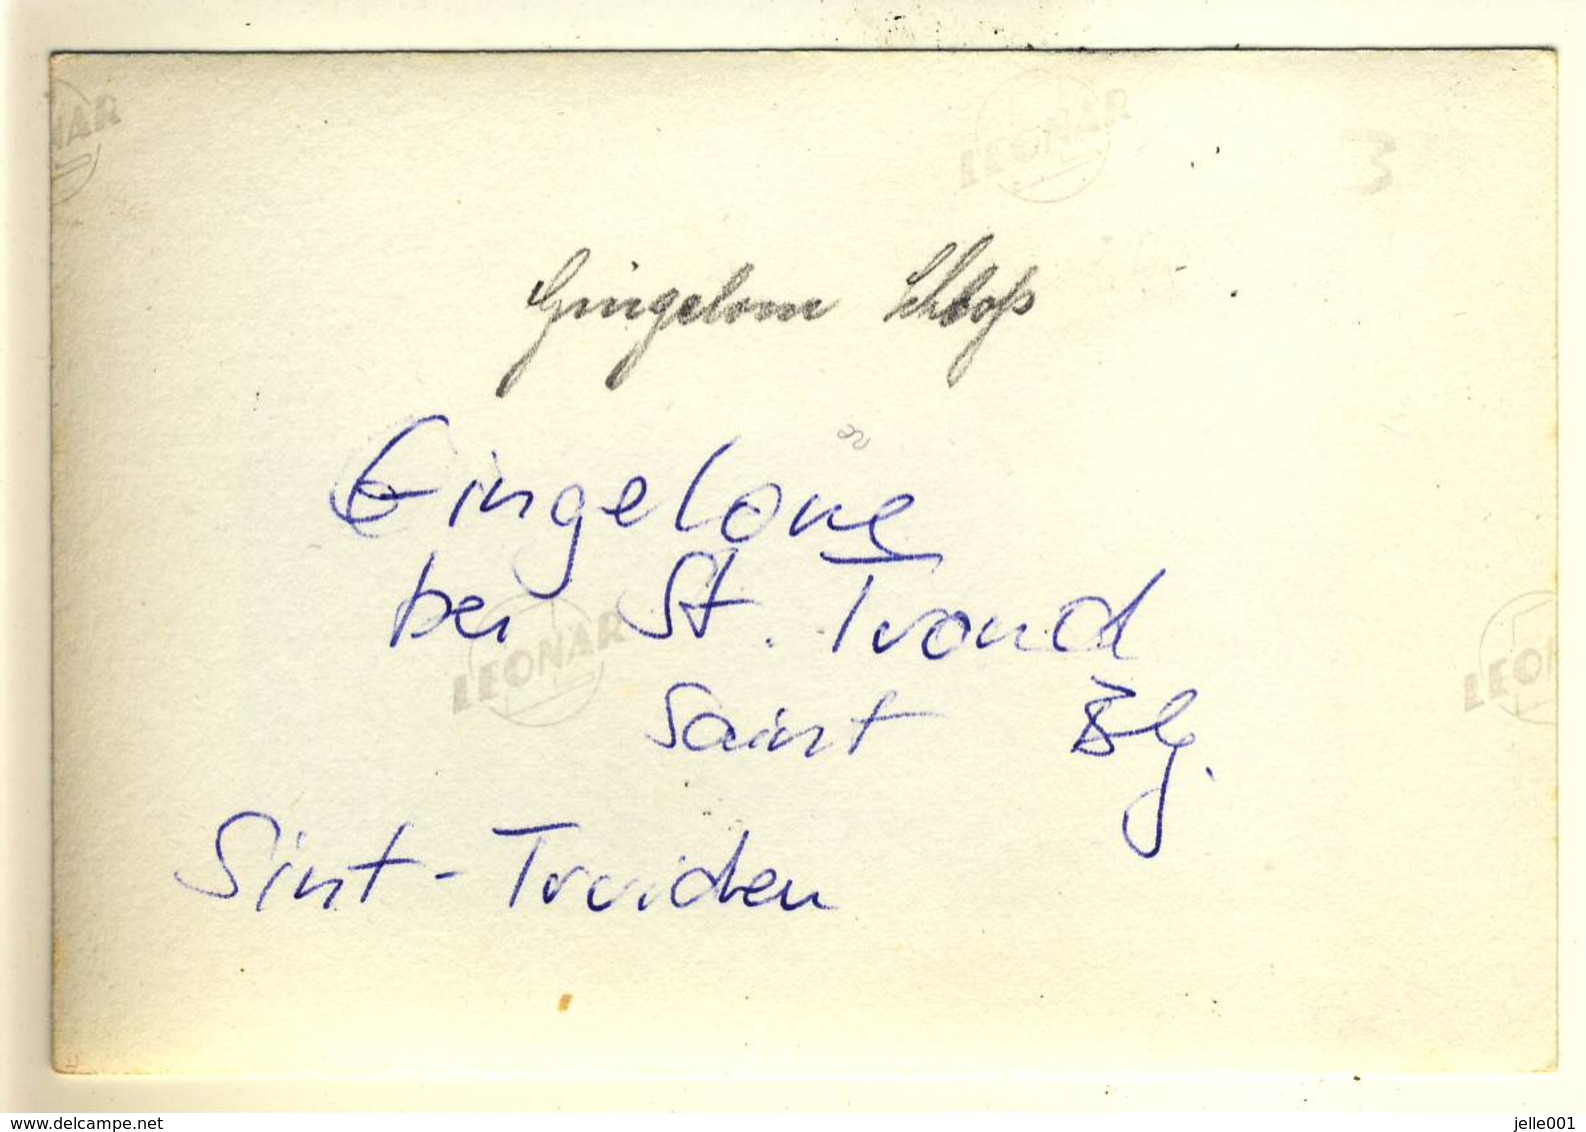 LEONAR
LEONAR
3
Gingelom Schloß
Gingelome
bei St. Trond
LEONAR
LEONAR
Saint Blg.
Sint-Truiden
www.delcampe.net
jelle001